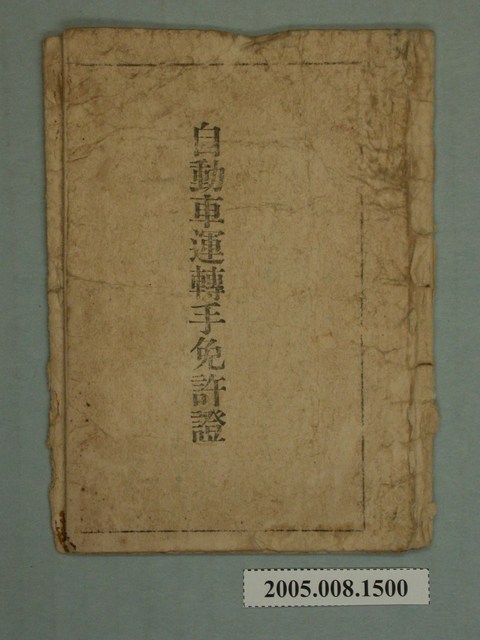 自動車運轉手免許證
2005.008.1500